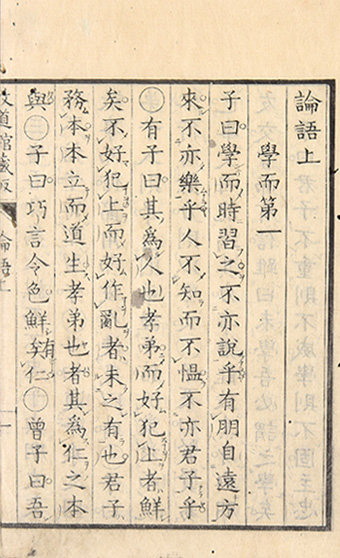 論語上
學而第一
子曰學而時習之不亦說乎有朋自遠方
來不亦樂乎人不知而不慍不亦君子乎
○有子曰其爲人也孝弟而好犯上者鮮
矣不好犯上而好作亂者未之有也君子
務本本立而道生孝弟也者其爲仁之本
與○子曰巧言令色鮮矣有仁○曾子曰吾
道館藏版 論語上